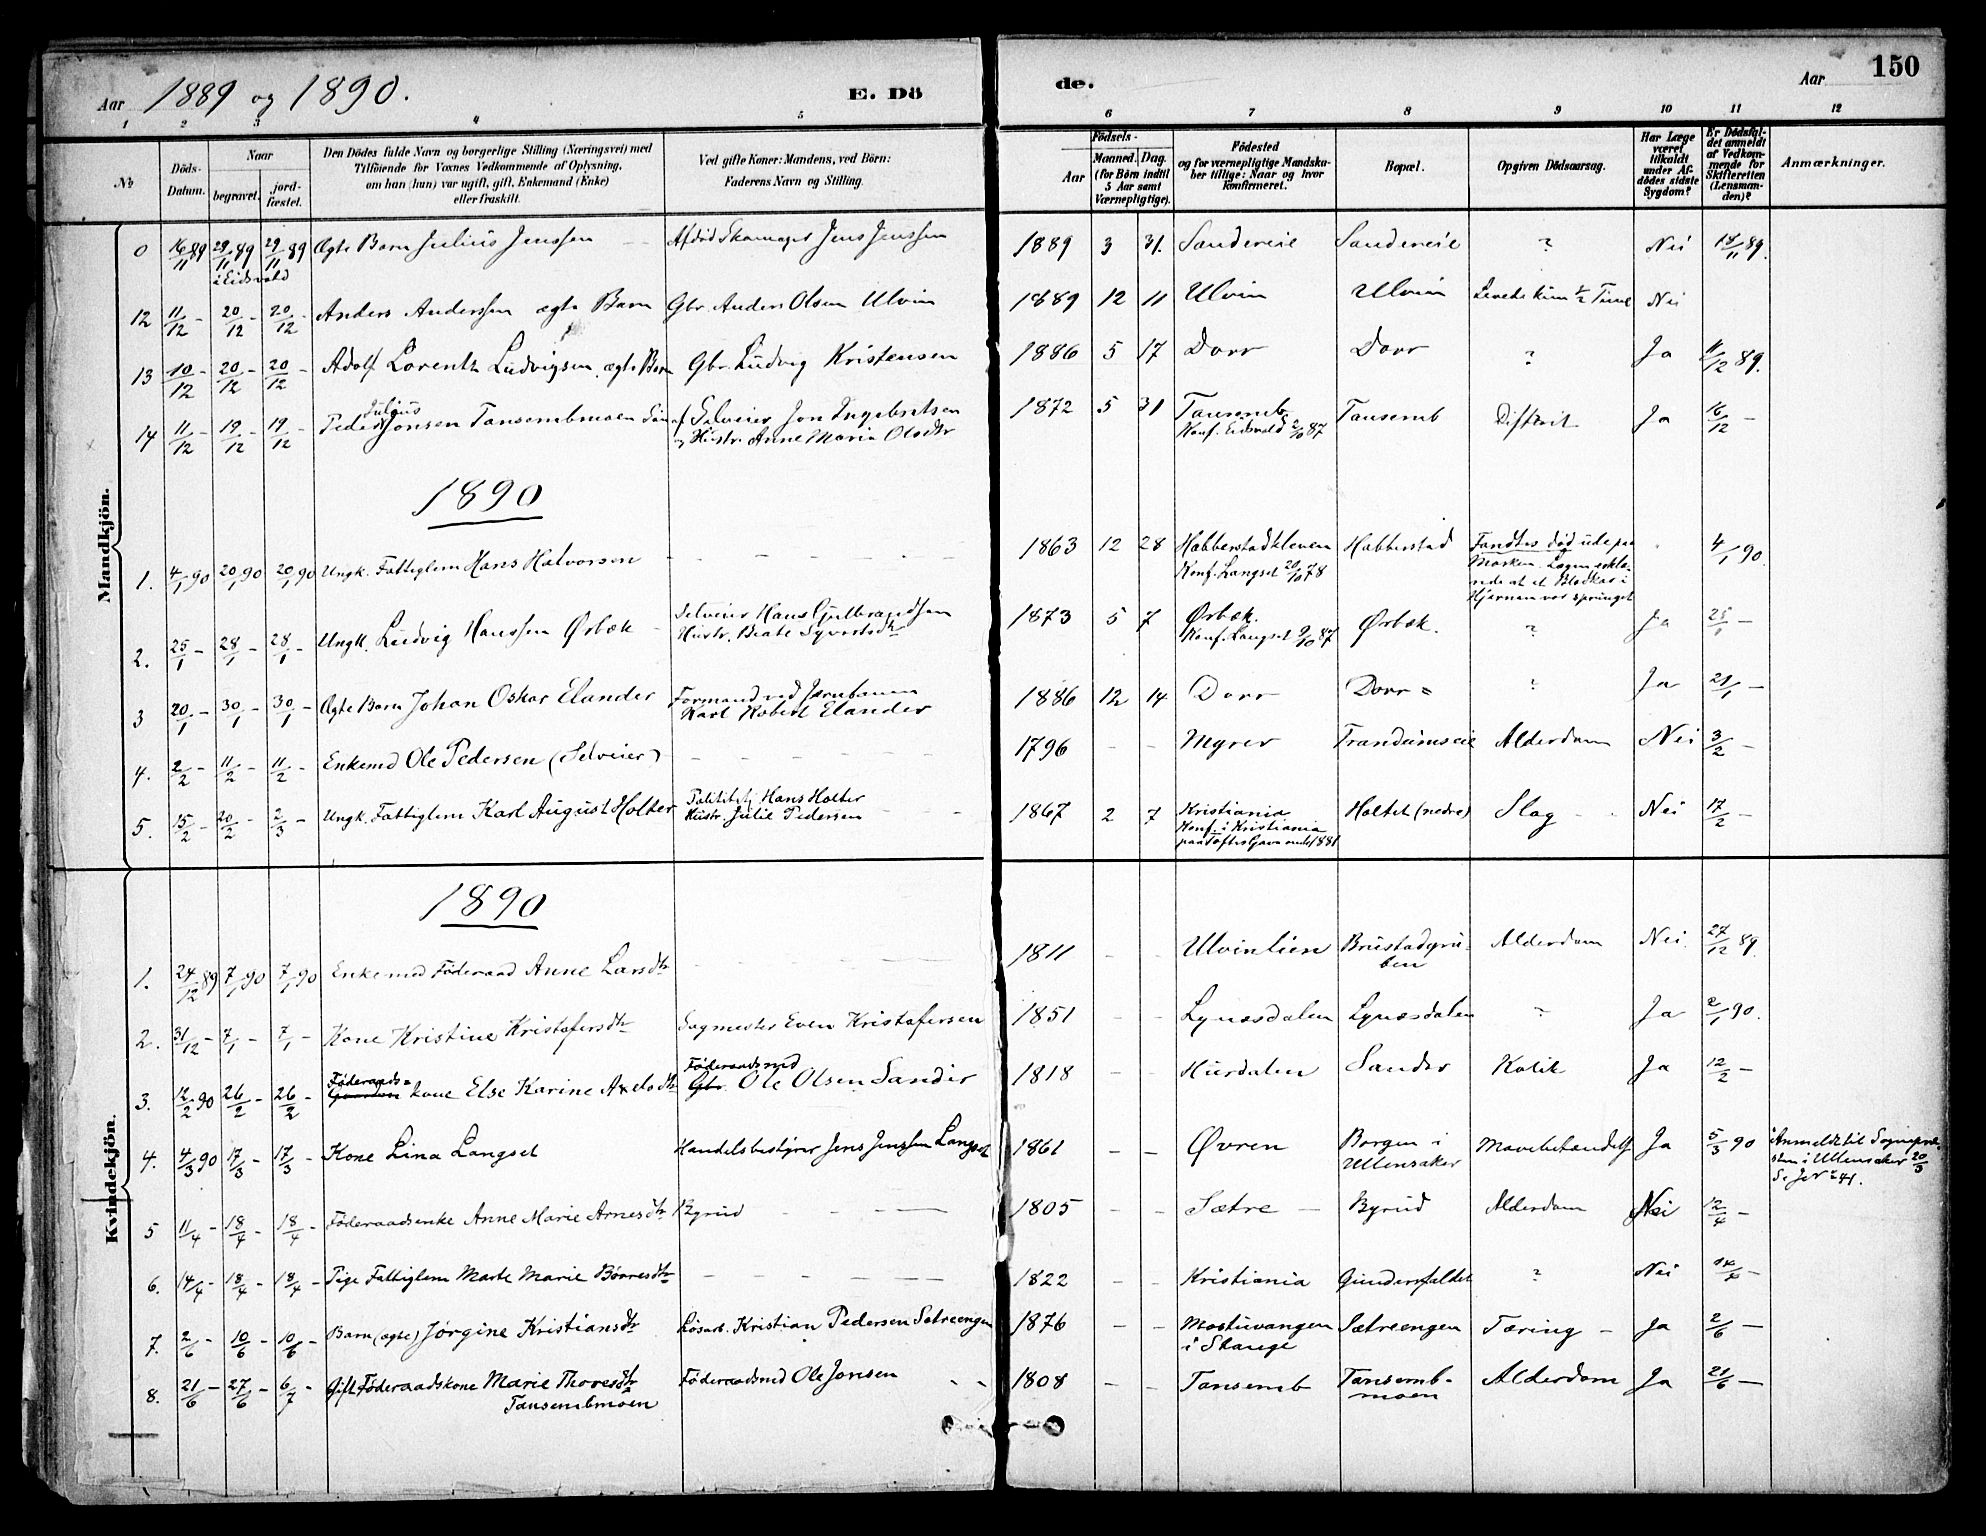 Aar 1889 og 1890.
E. Dö
de.
Aar
150
1 2 3 4 5 6 7 8 9 10 11 12
№
Döds-
Datum.
Naar
begravet.
jord-
fæstet.
Den Dödes fulde Navn og borgerlige Stilling (Næringsvei) med
Tilföiende for Voxnes Vedkommende af Oplysning,
om han (hun) var ugift, gift, Enkemand (Enke)
eller fraskilt.
Ved gifte Koner: Mandens, ved Börn:
Faderens Navn og Stilling.
Födsels-
Aar
Maaned. Dag.
(for Börn indtil
5 Aar samt
Værnepligtige).
Födested
og for værnepligtige Mandska-
ber tillige: Naar og hvor
konfirmeret.
Bopæl.
Opgiven Dödsaarsag.
Har Læge
været
tilkaldt
under Af-
dödes sidste
Sygdom?
Er Dödsfal-
det anmeldt
af Vedkom-
mende for
Skifteretten
(Lensman-
den)?
Anmærkninger.
Mandkjön.
0 16/11 89 29/11 89 29/11 89 Ægte Barn Julius Jenssen Afdød Skomager Jens Jenssen 1889 3 31. Sandereie Sandereie ? Nei 18/11 89.
i Eidsvold
12 11/12 - 20/12 - 20/12 - Anders Anderssen ægte Barn Gbr. Anders Olsen Ulvin 1889 12 11 Ulvin Ulvin Levede kun ½ Time Nei
13 10/12 - 20/12 - 20/12 - Adolf Lorentz Ludvigsen ægte Barn Gbr. Ludvig Kristensen 1886 5 17 Dorr Dorr ? Ja 11/12 89.
Julius
14 11/12 - 19/12 - 19/12 - Peder Jonsen Tansembmoen Søn af Selveier Jon Ingebretsen 1872 5 31 Tansemb Tansemb Difterit Ja 16/12 -
og Hustr. Anne Maria Olsdtr Konf. Eidsvold 2/10 87
1890
1. 4/1 90 20/1 90 20/1 90 Ungk. Fattiglem Hans Halvorsen - - - 1863 12 28 Habberstadkleven Habberstad Fandtes død ude paa 4/1 90.
Konf. Langset 20/10 78
Marken. Lægen erklæ-
rede at et Blodkar i
Hjernen var sprunget
2. 25/1 - 28/1 - 28/1 - Ungk. Ludvig Hanssen Ørbæk Selveier Hans Gulbrandsen 1873 5 7 Ørbæk. Ørbæk. ? Ja 25/1 -
Hustr. Beate Syvertsdtr Konf. Langset 9/10 87
3 20/1 - 30/1 - 30/1 - Ægte Barn Johan Oskar Elander Formand ved Jernbanen 1886 12 14 Dorr Dorr = ? Ja 21/1 -
Karl Robert Elander
4. 2/2 - 11/2 - 11/2 - Enkemd Ole Pedersen (Selveier) - - - 1796 - - Myrer Trandumseie Alderdom Nei 3/2 -
5. 15/2 - 20/2 - 2/3 - Ungk. Fattiglem Karl August Holter Politibetj. Hans Holter 1867 2 7 Kristiania Holtet (nedre) Slag Nei 17/2 -
Hustr. Julie Pedersen Konf. i Kristiania
paa Toftes Gave 1881
Kvindekjön.
1890
1. 24/12 89 7/1 90 7/1 90 Enke med Föderaad Anne Larsdtr 1811 - - Ulvinlien Brustadgru-
ben Alderdom Nei. 27/12 89.
2. 31/12 - 7/1 - 7/1 - Kone Kristine Kristofersdtr Sagmester Even Kristofersen 1851 - - Lynæsdalen Lynæsdalen ? Ja 2/1 90.
Föderaads= Föderaadsmd
3. 12/2 90 26/2 - 26/2 - kone Else Karine Axelsdtr Gbr. Ole Olsen Sander 1818 - - Hurdalen Sander Kolik Ja 12/2 -
4. 4/3 90 17/3 - 17/3 - Kone Lina Langset Handelsbestyrer Jens Jenssen Langset 1861 - - Øvren Borgen i
Ullensaker Ja 5/3 90 Anmeldt til Sognepræ-
sten i Ullensaker 20/3
Se J № 41.
5 11/4 - 18/4 - 18/4 - Föderaadsenke Anne Marie Arnesdtr Byrud - - - 1805 - - Sætre - Byrud Alderdom Nei 12/4 -
6. 14/4 - 18/4 - 18/4 - Pige Fattiglem Marte Marie Børresdtr - - - 1822 - - Kristiania Gundersfaldet ? Nei 14/4 -
7. 2/6 - 10/6 - 10/6 - Barn (ægte) Jørgine Kristiansdtr Løsarb. Kristian Pedersen Sætreengen 1876 - - Mostuvangen
i Stange Sætreengen Tæring - Ja 2/6 -
8. 21/6 - 27/6 - 6/7 - Gift Föderaadskone Marie Thoresdtr
Tansembmoen Föderaadsmd Ole Jonsen 1808 - - Tansemb Tansemb-
moen Alderdom Ja 21/6 -